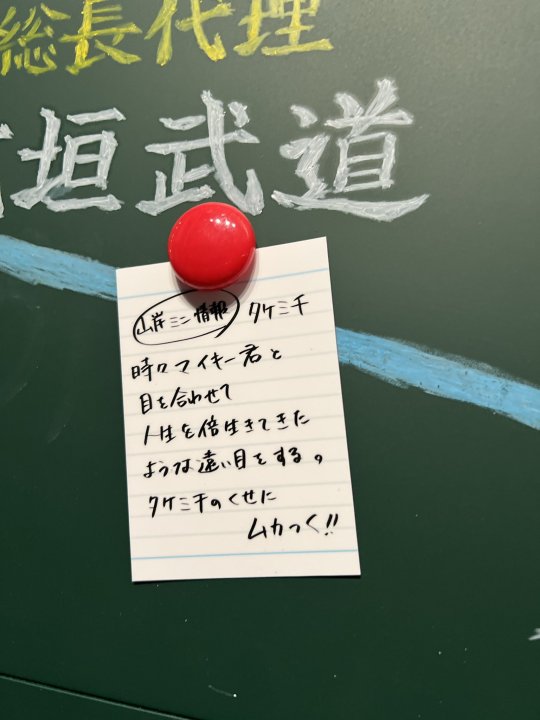 総長代理
垣武道
山岸ミニ情報 タケミチ
時々マイキー君と
目を合わせて
人生を倍生きてきた
ような遠い目をする。
タケミチのくせに
ムカつく!!